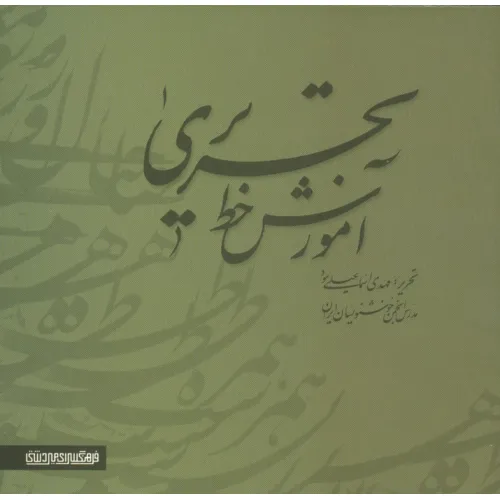 آموزش خط
تحریری
تحریر: مهدی اسماعیلی پور
مدرس انجمن خوشنویسان ایران
فرهنگسرای میردشتی